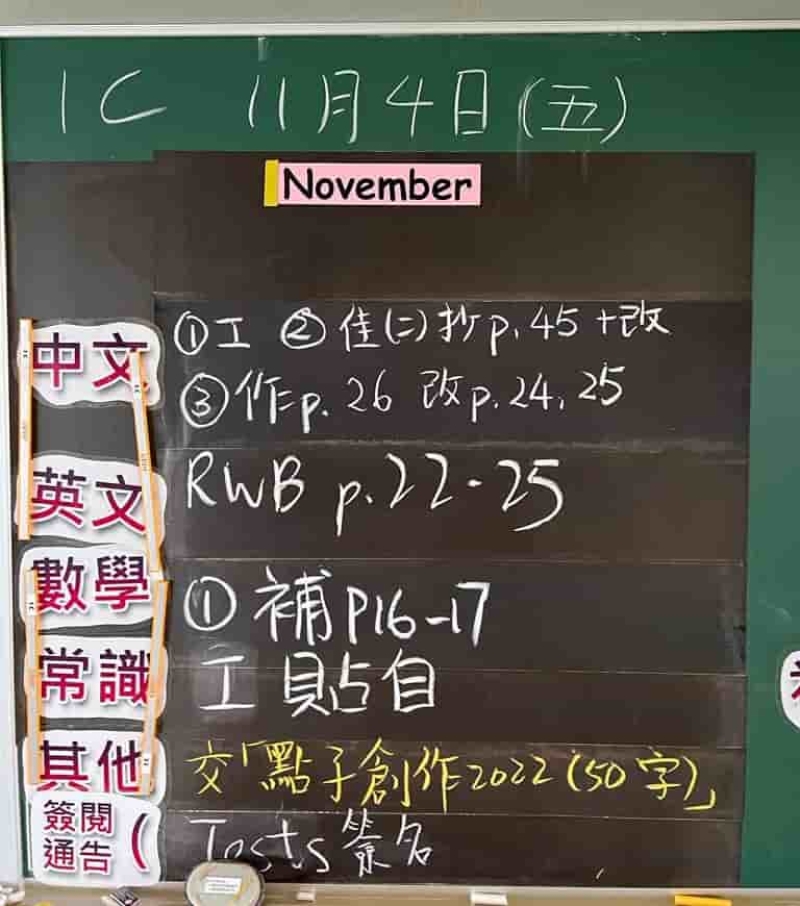 1C 11月4日(五)
November
中文 ①工 ②佳(二)抄p.45+改
③作=p.26 改p.24,25
英文 RWB p.22-25
數學 ①補P16-17
常識 工 貼自
其他 交「點子創作2022(50字)」
簽閱通告( Tests 簽名